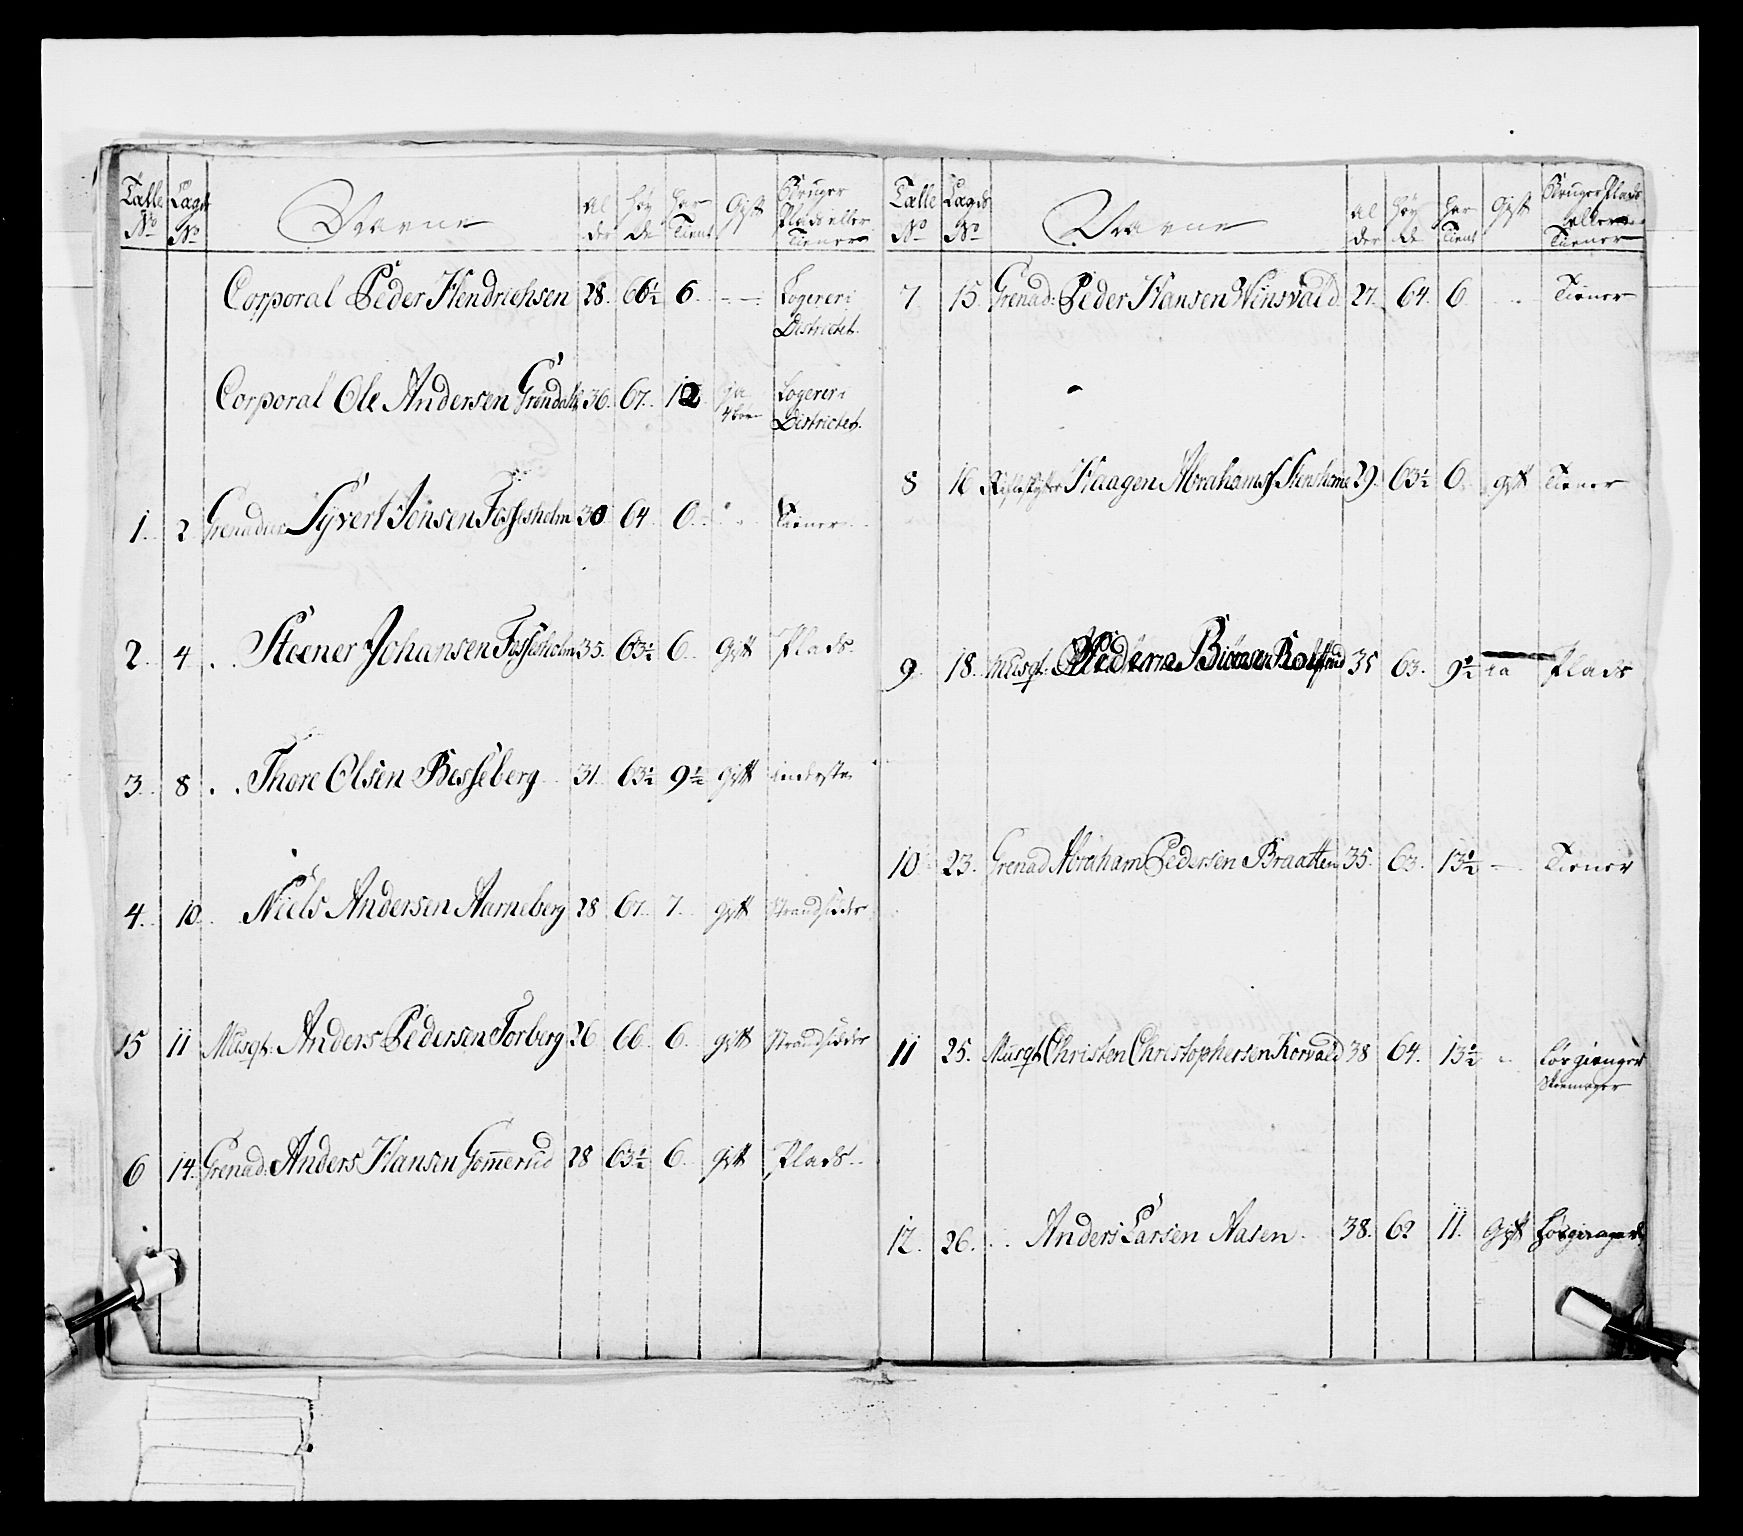 Tælle Lægds Navne Al Høy Har Gift Bruger
No No der de Tient Plads eller
Tiener
Corporal Peder Hendrichsen 28. 66½ 6. - - Logerer i
Districtet.
Corporal Ole Andersen Grøndahl 36. 67. 12 ja Logerer i
4 børn Districtet.
1. 2 Grenadeer Syvert Jonsen Fossesholm 30 64 6. Tiener
2. 4 . . Steener Johansen Fossesholm 35. 63½ 6. Gift Plads.
3. 8 . . Thore Olsen Besseberg 31. 63½ 9½ gift inderste
4. 10. Niels Andersen Aarneberg 28 67. 7. gift Strandsider
5 11 Musqt. Anders Pedersen Torberg 26 66. 6. gift Strandsider
6 14. Grenad. Anders Hansen Gomerud 28 63½ 6. gift Plads.
Tælle Lægds Navne Al Høy Har Gift Bruger Plads
No No der de Tient eller
Tiener
7 15. Grenad: Peder Hansen Winsvald. 27. 64. 6. Tiener
8 16 Haagen Abrahams. 29. 63½ 6. gift Tiener
9. 18. Musqt. 35 63. 9½ Plads
10 23. Grenad Abraham Pedersen Braatten 35. 63. 13½ - Tiener
11 25. Musqt. Christen Christophersen Korvald 38 64. 13½ Løsgienger
Skoemager
12. 26. . . Anders Larsen Aasen. 38. 62 11. Gift Løsgienger